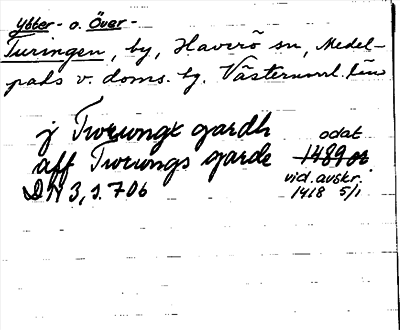 Ytter- o. Över-
Turingen, by, Haverö sn, Medel-
pads v. doms. tg. Västernorrl. län
j Twrwngx gardh odat
aff Twrwngs garde 1489 or
DN 3, s. 706 vid. avskr.
1418 5/1